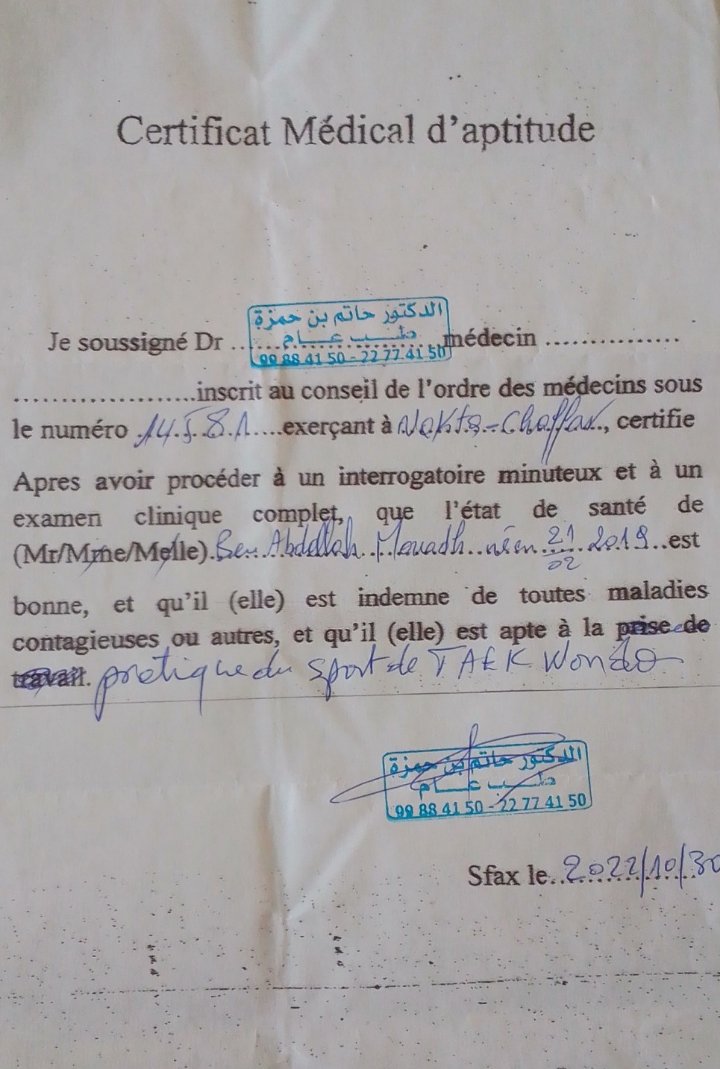 Certificat Médical d'aptitude
الدكتور حاتم بن حمزة
طبيب عام
98 88 41 50 - 22 77 41 50
Je soussigné Dr ........................médecin ...............
....................inscrit au conseil de l'ordre des médecins sous
le numéro .14.5.8.1....exerçant à Nakta-Chaffar., certifie
Apres avoir procéder à un interrogatoire minuteux et à un
examen clinique complet, que l'état de santé de
(Mr/Mme/Melle).Ben Abdellah..Mouadh..né en 21/02 2019..est
bonne, et qu'il (elle) est indemne de toutes maladies
contagieuses ou autres, et qu'il (elle) est apte à la prise de
travail. pratique du sport de TAEKWONDO
الدكتور حاتم بن حمزة
طبيب عام
98 88 41 50 - 22 77 41 50
Sfax le..2022/10/30